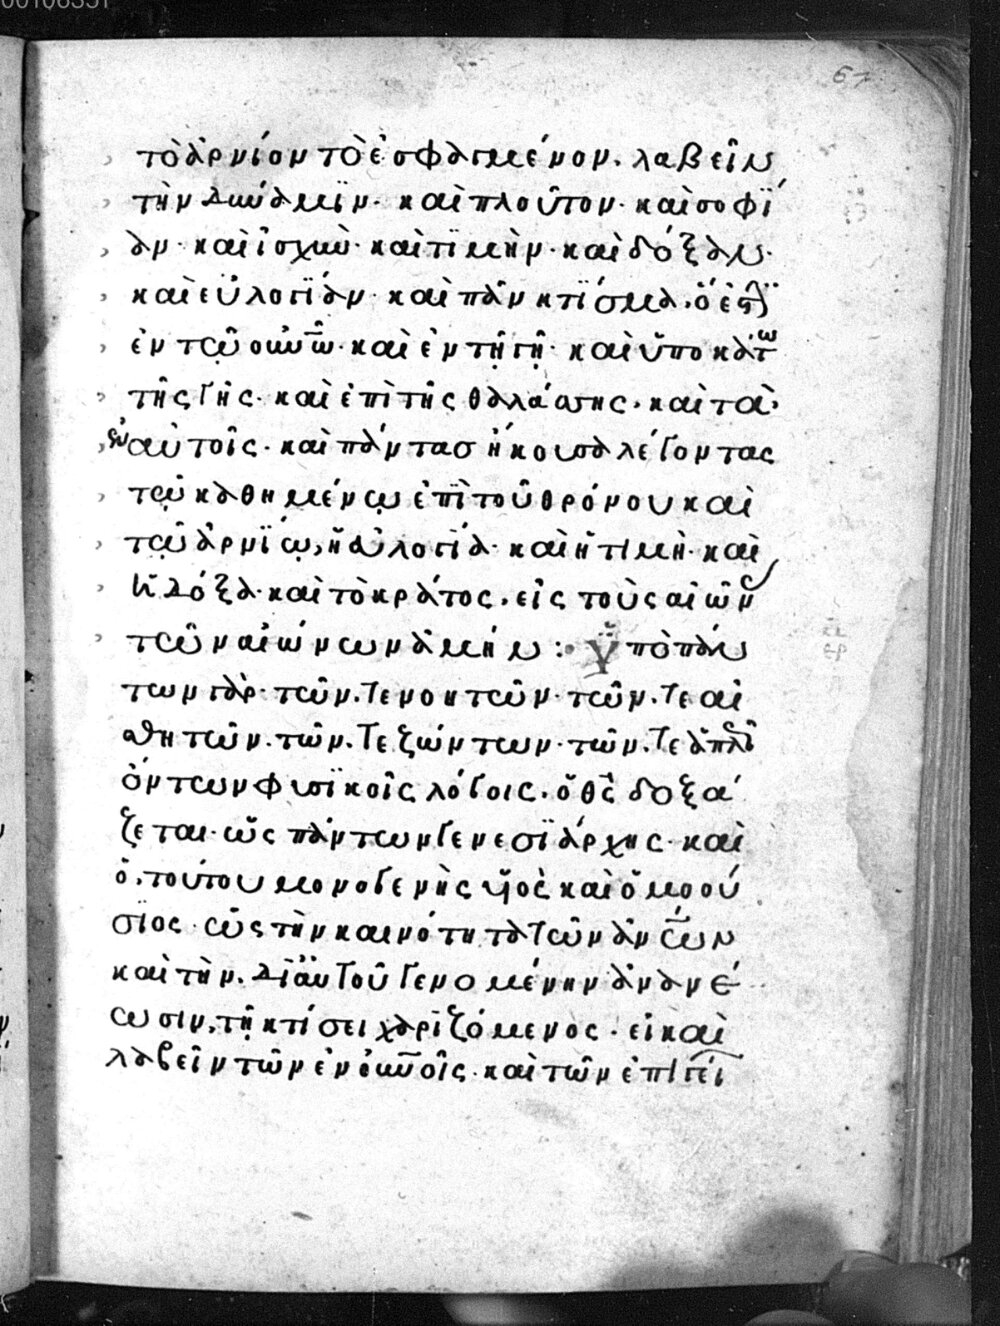 τὸ ἀρνίον τὸ ἐσφαγμένον. λαβεῖν
τὴν δύναμϊν· καὶ πλοῦτον· καὶ σοφί
αν· καὶ ἰσχὺν· καὶ τϊμὴν· καὶ δόξαν·
καὶ εὐλογΐαν· καὶ πᾶν κτΐσμα. ὅ ἐστϊ
ἐν τῷ οὐνῶ· καὶ ἐν τῇ γῇ· καὶ ὕποκάτω
τῆς γῆς· καὶ ἐπὶ τῆς θαλάσσης· καὶ τὰ·
ἐν αὐτοῖς· καὶ πάντας ἤκουσα λέγοντας
τῷ καθημένῳ ἐπῒ τοῦ θρόνου καὶ
τῷ ἀρνΐῳ, ἡ εὐλογΐα· καὶ ἡ τιμὴ· καὶ
ἡ δόξα· καὶ τὸ κράτος. εἰς τοὺς αἰῶν
τῶν αἰώνων ἀμήν :· Ὑπὸ πάν
των γὰρ· τῶν. τε νοητῶν· τῶν. τε αἰ
σθητῶν. τῶν. τε ζώντων· τῶν. τε ἁπλῶ
ὄντων φυσϊκοῖς λόγοις. ὁ θς δοξά
ζεται· ὡς πάντων γενεσϊάρχης· καὶ
ὁ. τούτου μονογενὴς υἱὸς καὶ ὁμοού
σϊος· ὡς τὴν καινότητα τῶν ἀνων
καὶ τὴν. δϊ αὐτοῦ γενομένην ἀνανέ
ωσιν. τῇ κτίσει χαρϊζόμενος· εἰ καὶ
λαβεῖν τῶν ἐν οὐνοῖς· καὶ τῶν ἐπιγεί